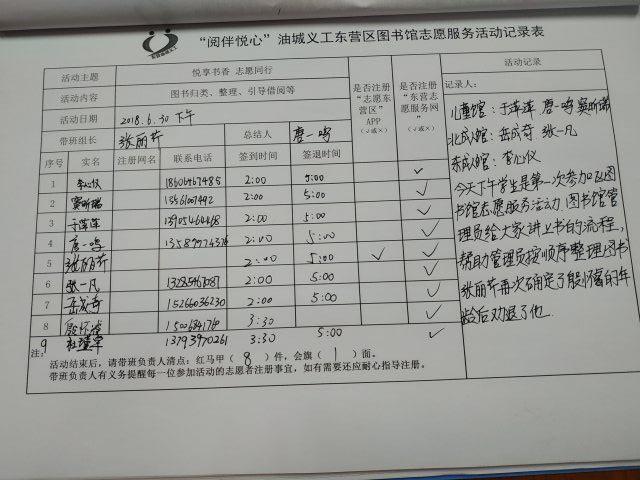 “阅伴悦心”油城义工东营区图书馆志愿服务活动记录表
活动主题 悦享书香 志愿同行
活动内容 图书归类、整理、引导借阅等
活动日期 2018.6.30下午
带班组长 张丽芹 总结人 唐一鸣
是否注册“志愿东营区”APP（√或×）
是否注册“东营志愿服务网”（√或×）
序号 实名 注册网名 联系电话 签到时间 签退时间
1 李心仪 2:00 5:00 √
2 窦昕瑞 2:00 5:00 √
3 于萍萍 2:00 5:00 √
4 唐一鸣 2:00 5:00 √
5 张丽芹 2:00 5:00 √ √
6 张一凡 2:00 5:00 √
7 岳成奇 15266036230 2:00 5:00 √
8 殷怀 3:30 √
9 13793970261 3:30 5:00 √
注：
活动结束后，请带班负责人清点：红马甲（8）件，会旗（1）面。
带班负责人有义务提醒每一位参加活动的志愿者注册事宜，如有需要还应耐心指导注册。
活动记录
记录人：
儿童馆：于萍萍 唐一鸣 窦昕瑞
北成人馆：岳成奇 张一凡
东成人馆：李心仪
今天下午学生是第一次参加区图
书馆志愿服务活动 图书馆管
理员给大家讲上书的流程，
帮助管理员按顺序整理图书
张丽芹再次确定了殷怀的年
龄后劝退了他